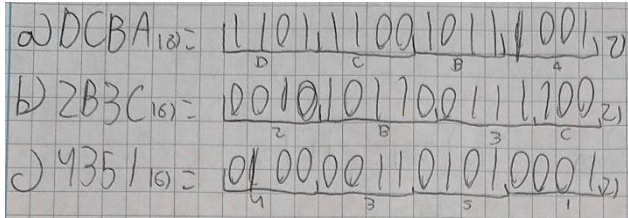 a) DCBA(16) = 1101,1100,1011,1001,2)
D C B A
b) 2B3C(16) = 0010,1011,0011,1100,2)
2 B 3 C
c) 4351(16) = 0100,0011,0101,0001,2)
4 3 5 1